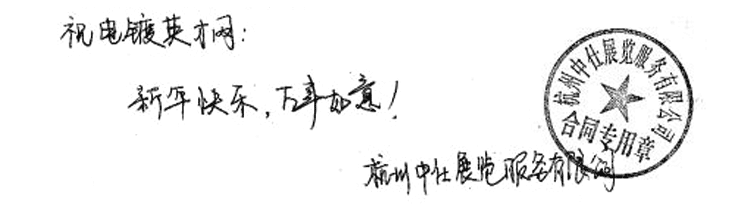 祝电镀英才网：
新年快乐，万事如意！
杭州中仕展览服务有限公司
杭州中仕展览服务有限公司
合同专用章